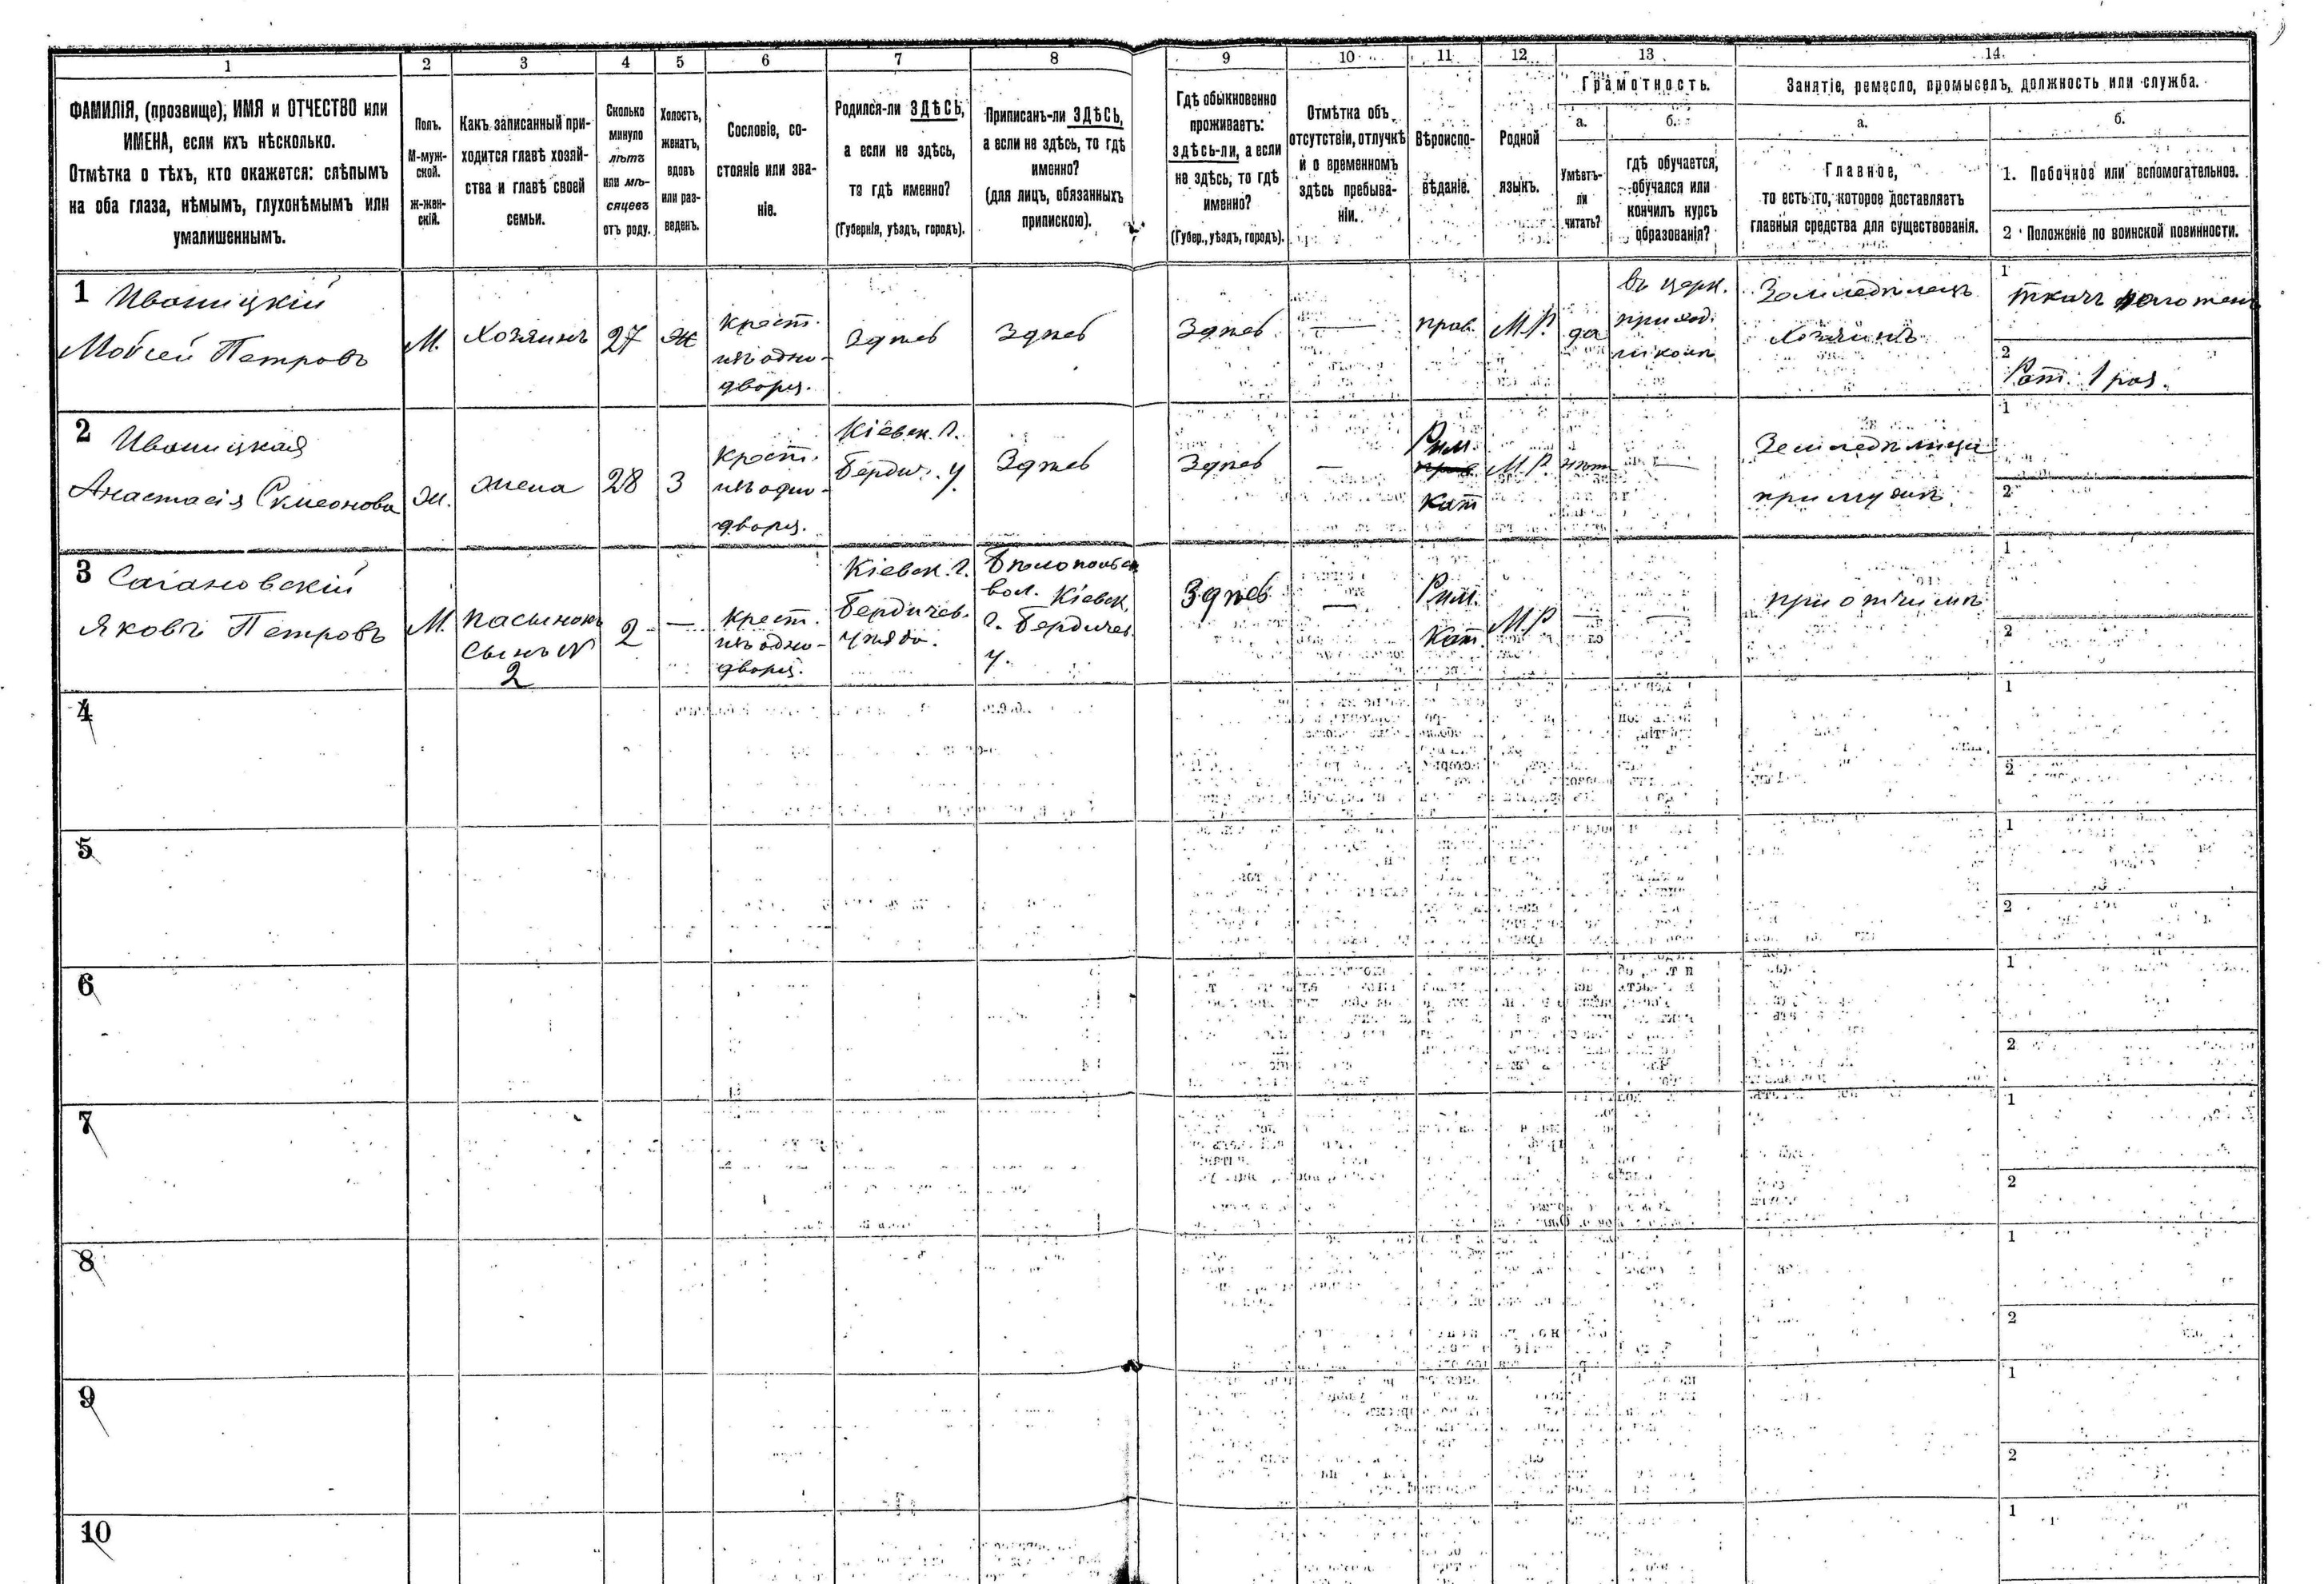 1 2 3 4 5 6 7 8 9 10 11 12 13 14.
ФАМИЛІЯ, (прозвище), ИМЯ и ОТЧЕСТВО или
ИМЕНА, если ихъ нѣсколько.
Отмѣтка о тѣхъ, кто окажется: слѣпымъ
на оба глаза, нѣмымъ, глухонѣмымъ или
умалишеннымъ.
Полъ.
М-муж-
ской.
ж-жен-
скій.
Какъ записанный при-
ходится главѣ хозяй-
ства и главѣ своей
семьи.
Сколько
минуло
лѣтъ
или мѣ-
сяцевъ
отъ роду.
Холостъ,
женатъ,
вдовъ
или раз-
веденъ.
Сословіе, со-
стояніе или зва-
ніе.
Родился-ли ЗДѢСЬ,
а если не здѣсь,
то гдѣ именно?
(Губернія, уѣздъ, городъ).
Приписанъ-ли ЗДѢСЬ,
а если не здѣсь, то гдѣ
именно?
(для лицъ, обязанныхъ
припискою).
Гдѣ обыкновенно
проживаетъ:
здѣсь-ли, а если
не здѣсь, то гдѣ
именно?
(Губер., уѣздъ, городъ).
Отмѣтка объ
отсутствіи, отлучкѣ
и о временномъ
здѣсь пребыва-
ніи.
Вѣроиспо-
вѣданіе.
Родной
языкъ.
Грамотность.
а.
Умѣетъ-
ли
читать?
б.
гдѣ обучается,
обучался или
кончилъ курсъ
образованія?
Занятіе, ремесло, промыселъ, должность или служба.
а.
Главное,
то есть то, которое доставляетъ
главныя средства для существованія.
б.
1. Побочное или вспомогательное.
2 Положеніе по воинской повинности.
1 Ивоницкій
Мойсей Петровъ
М.
Хозяинъ
27
Ж
крест.
изъ одно-
дворц.
Здѣсь
Здѣсь
Здѣсь
—
прав.
М.Р.
да
въ церк.
приход.
школѣ
Земледѣлецъ
Хозяинъ
1
ткачъ полотенъ
2
Рат. 1 раз.
2 Ивоницкая
Анастасія Симеонова
Ж.
жена
28
З
крест.
изъ одно-
дворц.
Кіевск. г.
Бердич. у.
Здѣсь
Здѣсь
—
Рим.
прав.
Кат
М.Р.
нѣтъ
—
Земледѣлица
при мужѣ
1
2
3 Сагановскій
Яковъ Петровъ
М.
пасынокъ
сынъ №
2
2
—
крест.
изъ одно-
дворц.
Кіевск. г.
Бердичев.
уѣзда.
вол. Кіевск.
г. Бердичев.
у.
Здѣсь
—
Рим.
Кат.
М.Р.
—
—
при отчимѣ
1
2
4
1
2
5
1
2
6
1
2
7
1
2
8
1
2
9
1
2
10
1